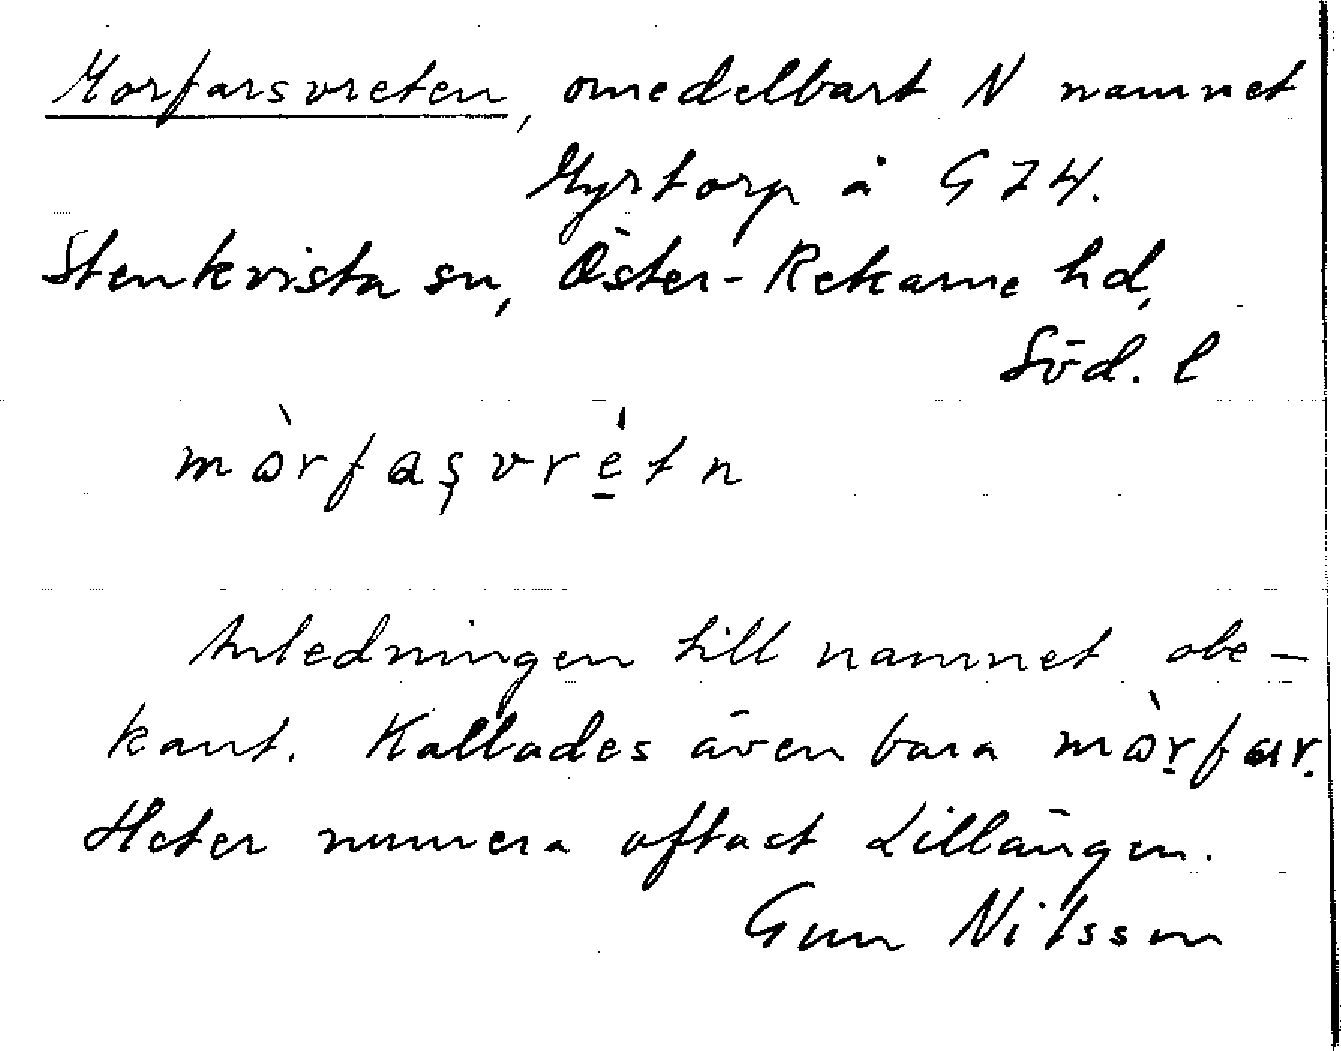 Morfarsvreten, omedelbart N namnet
Myrtorp å G 74.
Stenkvista sn, Öster-Rekarne hd,
Söd. l
mòrfaşvrétn
Anledningen till namnet obe-
kant. Kallades även bara mòrfar.
Heter numera oftast Lillängen.
Gun Nilsson